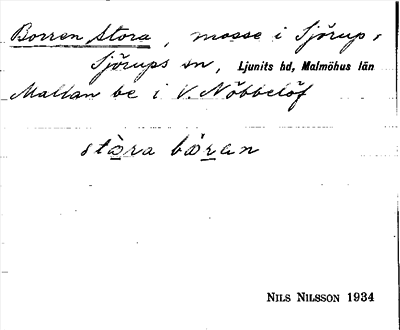 Borren Stora, mosse i Sjörup,
Sjörups sn, Ljunits hd, Malmöhus län
Mellan be i V. Nöbbelöf
stòra bóran
NILS NILSSON 1934